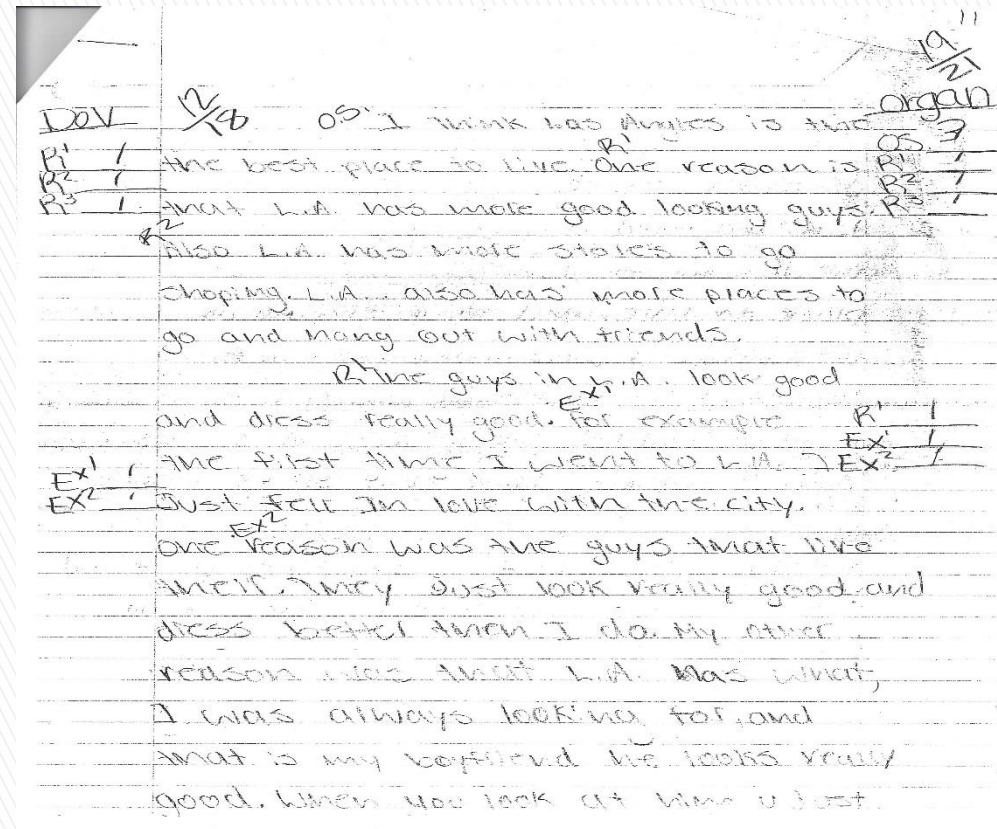 11
19/21
Dev 12/18 organ
OS. I think Las Angles is the OS. 3
R1 1 the best place to live. R1 One reason is R1 1
R2 1 R2 1
R3 1 that L.A. has more good looking guys. R3 1
R2 Also L.A. has more stores to go
shoping. L.A. also has more places to
go and hang out with friends.
R1 The guys in L.A. look good
and dress really good. Ex1 for example R1 1
Ex1 1 the first time I went to L.A. I Ex1 1
Ex2 1 Just fell In love with the city. Ex2 1
Ex2
one reason was the guys that live
their. They Just look really good and
dress better then I do. My other
reason was that L.A. Has what,
I was always looking for, and
that is my boyfriend he looks really
good. When you look at him u just